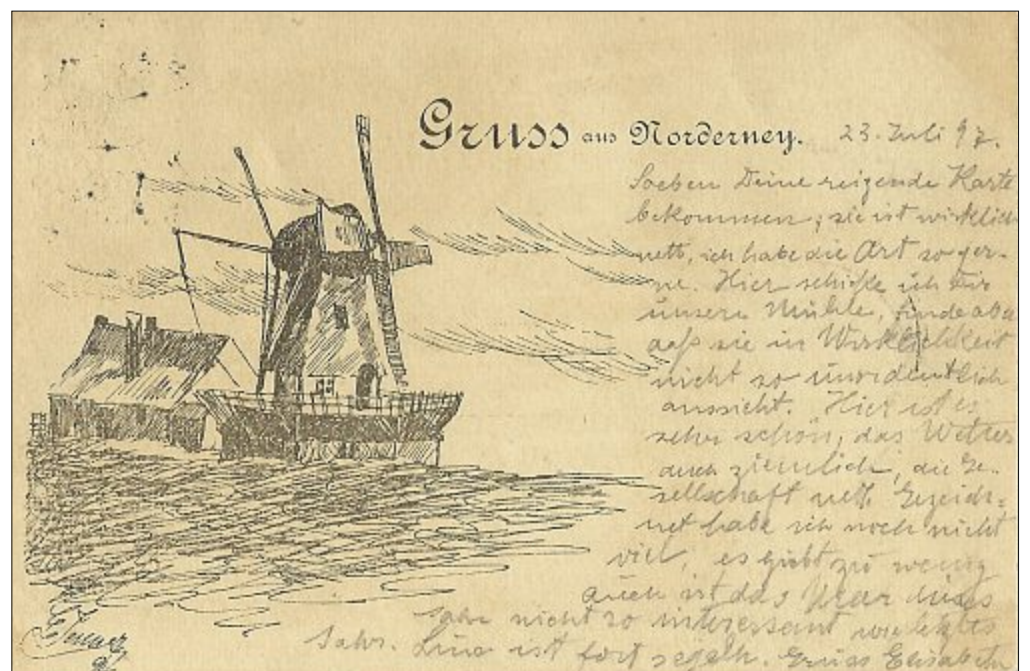 Gruss aus Norderney. 23. Juli 97.
Soeben Deine reizende Karte
bekommen; sie ist wirklich
nett, ich habe die Art so ger-
ne. Hier schicke ich Dir
unsere Mühle, finde aber
daß sie in Wirklichkeit
nicht so unordentlich
aussieht. Hier ist es
sehr schön, das Wetter
auch ziemlich, die Ge-
sellschaft nett. Gezeich-
net habe ich noch nicht
viel, es giebt zu wenig
auch ist das Meer dieses
Jahr nicht so interessant wie letztes
Jahr. ist fort segeln. Gruss Elisabeth